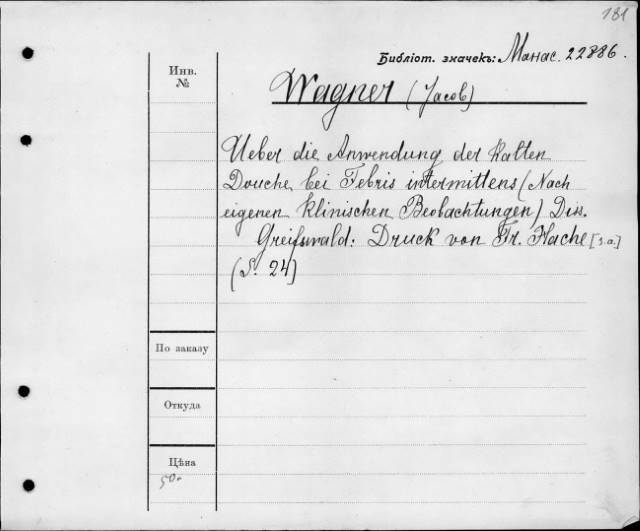 181
Библіот. значекъ: Манас. 22886.
Инв.
№
Wagner (Jacob)
Ueber die Anwendung der Kalten
Douche bei Febris intermittens (Nach
eigenen klinischen Beobachtungen) Diss.
Greifswald: Druck von Fr. Hache [s.a.]
(S. 24)
По заказу
Откуда
Цѣна
50.